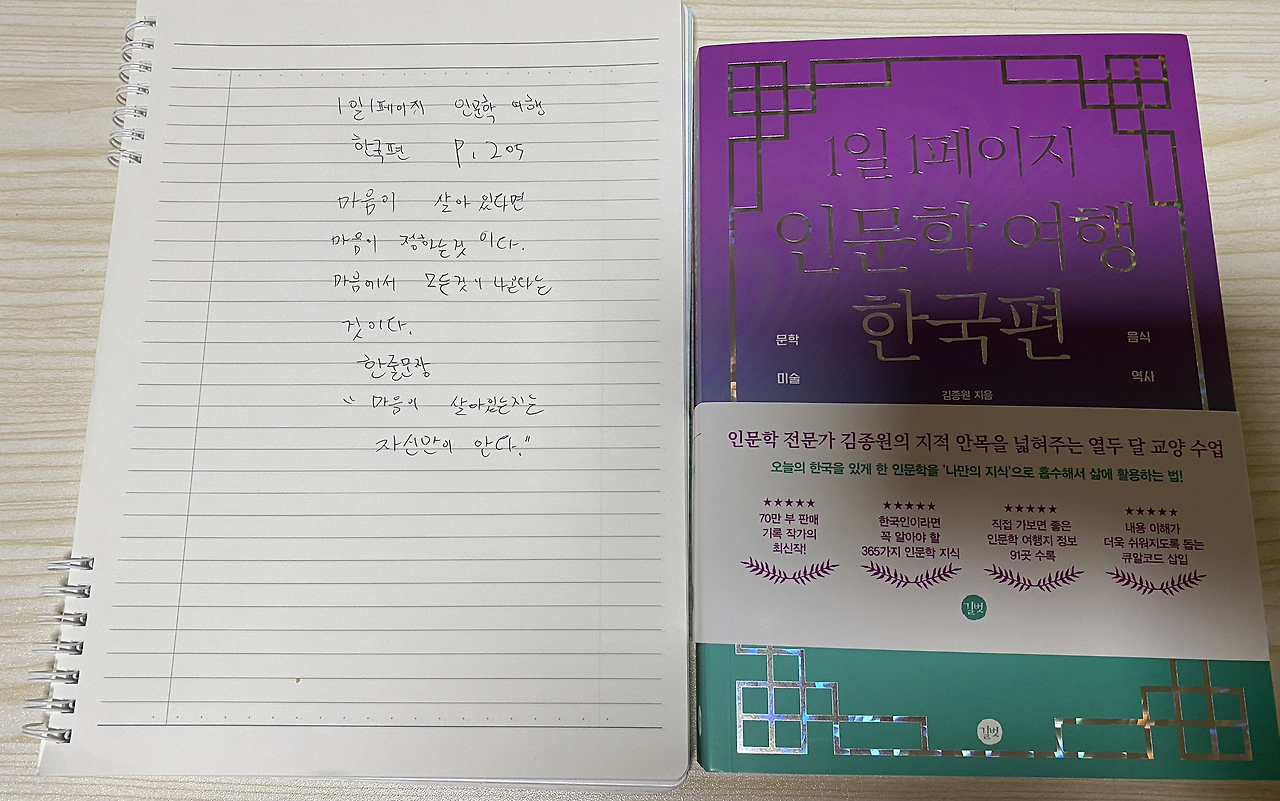 1일1페이지 인문학 여행
한국편 P. 205
마음이 살아 있다면
마음이 정하는것 이다.
마음에서 모든것이 나온다는
것이다.
한줄문장
"마음이 살아있는지는
자신만이 안다."
1일 1페이지
인문학 여행
한국편
문학
미술
음식
역사
김종원 지음
인문학 전문가 김종원의 지적 안목을 넓혀주는 열두 달 교양 수업
오늘의 한국을 있게 한 인문학을 '나만의 지식'으로 흡수해서 삶에 활용하는 법!
★★★★★
70만 부 판매
기록 작가의
최신작!
★★★★★
한국인이라면
꼭 알아야 할
365가지 인문학 지식
★★★★★
직접 가보면 좋은
인문학 여행지 정보
91곳 수록
★★★★★
내용 이해가
더욱 쉬워지도록 돕는
큐알코드 삽입
길벗
길벗